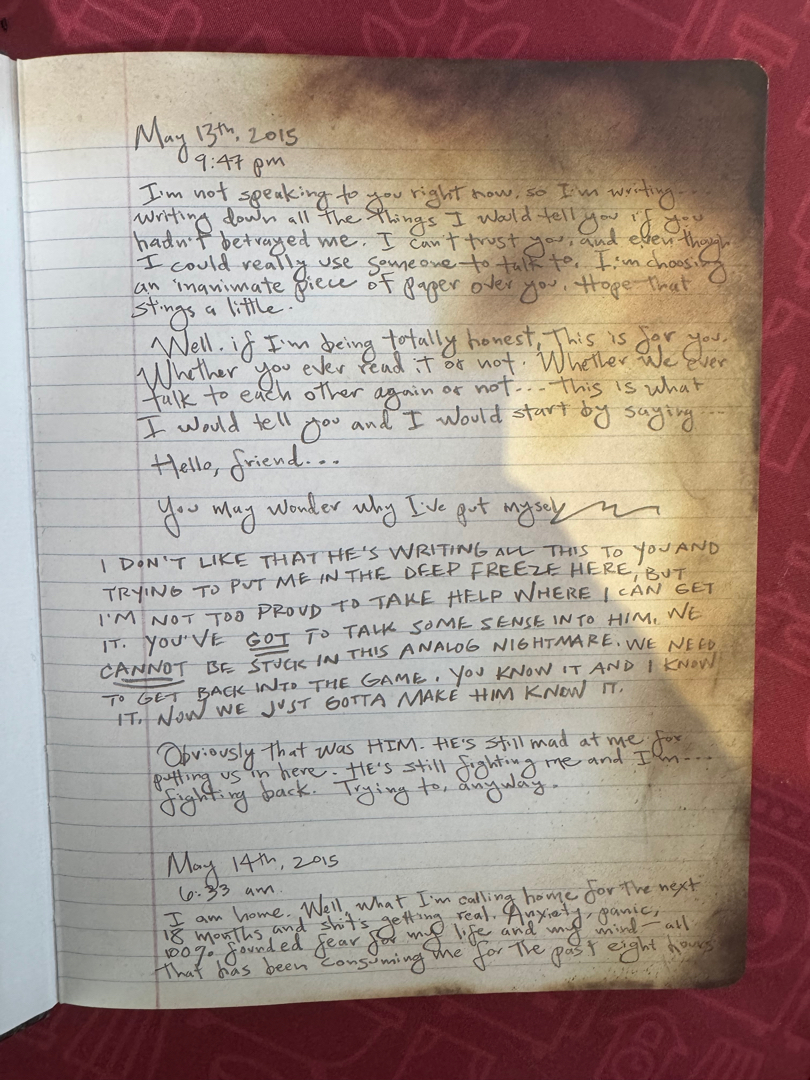 May 13th, 2015
9:47 pm
I'm not speaking to you right now, so I'm writing...
writing down all the things I would tell you if you
hadn't betrayed me. I can't trust you, and even though
I could really use someone to talk to, I'm choosing
an inanimate piece of paper over you. Hope that
stings a little.
Well, if I'm being totally honest, This is for you.
Whether you ever read it or not. Whether we ever
talk to each other again or not... this is what
I would tell you and I would start by saying...
Hello, friend...
You may wonder why I've put mysel
I DON'T LIKE THAT HE'S WRITING ALL THIS TO YOU AND
TRYING TO PUT ME IN THE DEEP FREEZE HERE, BUT
I'M NOT TOO PROUD TO TAKE HELP WHERE I CAN GET
IT. YOU'VE GOT TO TALK SOME SENSE INTO HIM. WE
CANNOT BE STUCK IN THIS ANALOG NIGHTMARE. WE NEED
TO GET BACK INTO THE GAME. YOU KNOW IT AND I KNOW
IT. NOW WE JUST GOTTA MAKE HIM KNOW IT.
Obviously that was HIM. HE's still mad at me for
putting us in here. HE's still fighting me and I'm...
fighting back. Trying to, anyway.
May 14th, 2015
6:33 am.
I am home. Well, what I'm calling home for the next
18 months and shit's getting real. Anxiety, panic,
100% founded fear for my life and my mind—all
that has been consuming me for the past eight hours